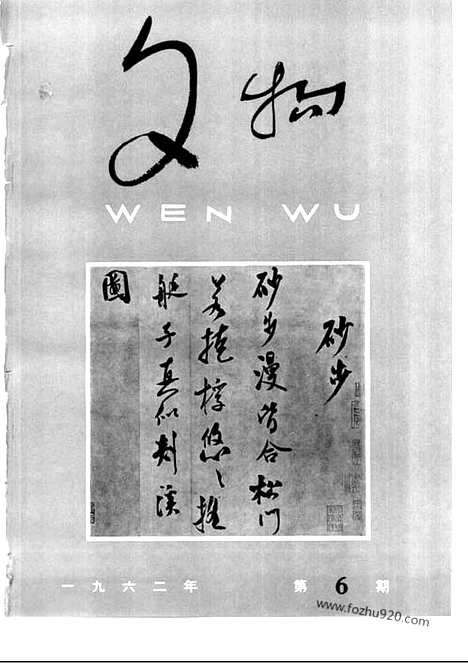 文物
WEN WU
砂步
砂步漫皆合松門
若掩桴悠々搖
艇子真似剡溪
圖
一九六二年 第6期
www.fozhu920.com